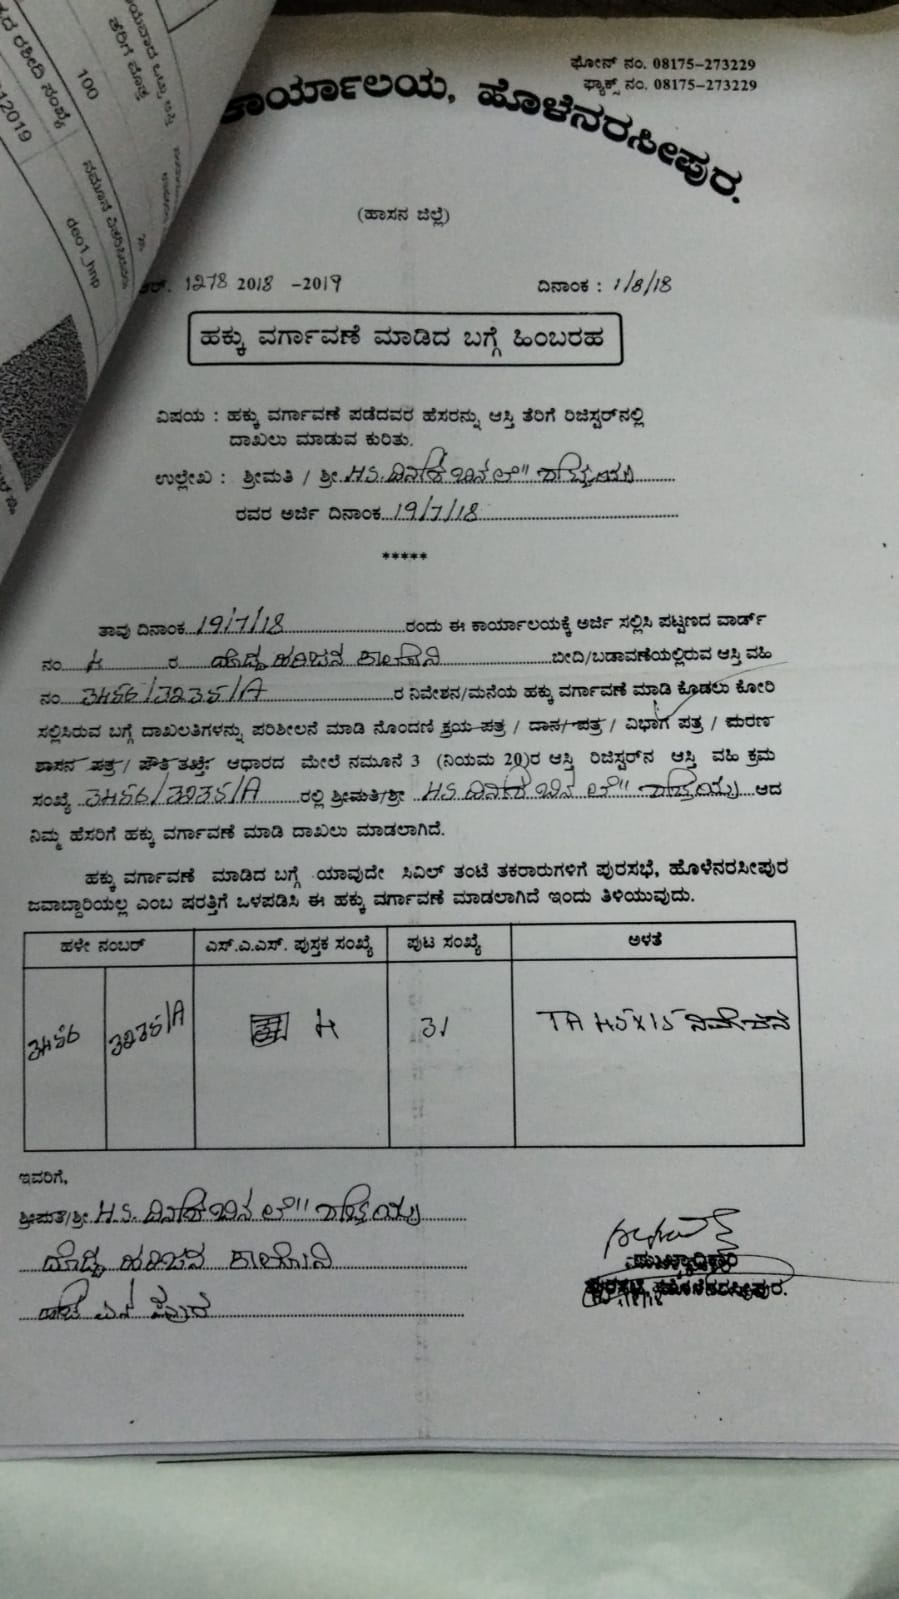 ಯವಾದ ಒಟ್ಟು ಆಸ್ತಿ
ತೆರಿಗೆ ಮೊತ್ತ
ರಶೀದಿ ಸಂಖ್ಯೆ
100
12019
ನಮೂನೆ
deo1_hnp
ಫೋನ್ ನಂ. 08175-273229
ಫ್ಯಾಕ್ಸ್ ನಂ. 08175-273229
ಕಾರ್ಯಾಲಯ, ಹೊಳೆನರಸೀಪುರ.
(ಹಾಸನ ಜಿಲ್ಲೆ)
ಆರ್. 1278 2018 -2019 ದಿನಾಂಕ : 1/8/18
ಹಕ್ಕು ವರ್ಗಾವಣೆ ಮಾಡಿದ ಬಗ್ಗೆ ಹಿಂಬರಹ
ವಿಷಯ : ಹಕ್ಕು ವರ್ಗಾವಣೆ ಪಡೆದವರ ಹೆಸರನ್ನು ಆಸ್ತಿ ತೆರಿಗೆ ರಿಜಿಸ್ಟರ್‌ನಲ್ಲಿ
ದಾಖಲು ಮಾಡುವ ಕುರಿತು.
ಉಲ್ಲೇಖ : ಶ್ರೀಮತಿ / ಶ್ರೀ H.S. ದಿನೇಶ ಬಿನ್ ಲೇ||
ರವರ ಅರ್ಜಿ ದಿನಾಂಕ 19/7/18
*****
ತಾವು ದಿನಾಂಕ 19/7/18 ರಂದು ಈ ಕಾರ್ಯಾಲಯಕ್ಕೆ ಅರ್ಜಿ ಸಲ್ಲಿಸಿ ಪಟ್ಟಣದ ವಾರ್ಡ್
ನಂ 4 ರ ದೊಡ್ಡ ಹರಿಜನ ಕಾಲೋನಿ ಬೀದಿ/ಬಡಾವಣೆಯಲ್ಲಿರುವ ಆಸ್ತಿ ವಹಿ
ನಂ 3456/3235/A ರ ನಿವೇಶನ/ಮನೆಯ ಹಕ್ಕು ವರ್ಗಾವಣೆ ಮಾಡಿ ಕೊಡಲು ಕೋರಿ
ಸಲ್ಲಿಸಿರುವ ಬಗ್ಗೆ ದಾಖಲತಿಗಳನ್ನು ಪರಿಶೀಲನೆ ಮಾಡಿ ನೊಂದಣಿ ಕ್ರಯ ಪತ್ರ / ದಾನ ಪತ್ರ / ವಿಭಾಗ ಪತ್ರ / ಮರಣ
ಶಾಸನ ಪತ್ರ / ಪೌತಿ ತಖ್ತೆ ಆಧಾರದ ಮೇಲೆ ನಮೂನೆ 3 (ನಿಯಮ 20)ರ ಆಸ್ತಿ ರಿಜಿಸ್ಟರ್‌ನ ಆಸ್ತಿ ವಹಿ ಕ್ರಮ
ಸಂಖ್ಯೆ 3456/3235/A ರಲ್ಲಿ ಶ್ರೀಮತಿ/ಶ್ರೀ H.S. ದಿನೇಶ ಬಿನ್ ಲೇ|| ಆದ
ನಿಮ್ಮ ಹೆಸರಿಗೆ ಹಕ್ಕು ವರ್ಗಾವಣೆ ಮಾಡಿ ದಾಖಲು ಮಾಡಲಾಗಿದೆ.
ಹಕ್ಕು ವರ್ಗಾವಣೆ ಮಾಡಿದ ಬಗ್ಗೆ ಯಾವುದೇ ಸಿವಿಲ್ ತಂಟೆ ತಕರಾರುಗಳಿಗೆ ಪುರಸಭೆ, ಹೊಳೆನರಸೀಪುರ
ಜವಾಬ್ದಾರಿಯಲ್ಲ ಎಂಬ ಷರತ್ತಿಗೆ ಒಳಪಡಿಸಿ ಈ ಹಕ್ಕು ವರ್ಗಾವಣೆ ಮಾಡಲಾಗಿದೆ ಇಂದು ತಿಳಿಯುವುದು.
ಹಳೇ ನಂಬರ್ ಎಸ್.ಎ.ಎಸ್. ಪುಸ್ತಕ ಸಂಖ್ಯೆ ಪುಟ ಸಂಖ್ಯೆ ಅಳತೆ
3456 3235/A 4 31 TA 45x15 ನಿವೇಶನ
ಇವರಿಗೆ,
ಶ್ರೀಮತಿ/ಶ್ರೀ H.S. ದಿನೇಶ ಬಿನ್ ಲೇ||
ದೊಡ್ಡ ಹರಿಜನ ಕಾಲೋನಿ
ಮುಖ್ಯಾಧಿಕಾರಿ
ಪುರಸಭೆ, ಹೊಳೆನರಸೀಪುರ.